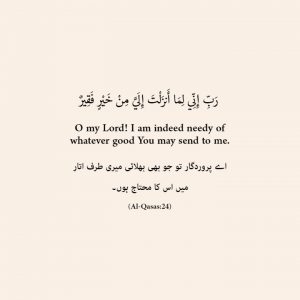 رَبِّ إِنِّي لِمَا أَنزَلْتَ إِلَيَّ مِنْ خَيْرٍ فَقِيرٌ
O my Lord! I am indeed needy of
whatever good You may send to me.
اے پروردگار تو جو بھی بھلائی میری طرف اتار
میں اس کا محتاج ہوں۔
(Al-Qasas:24)